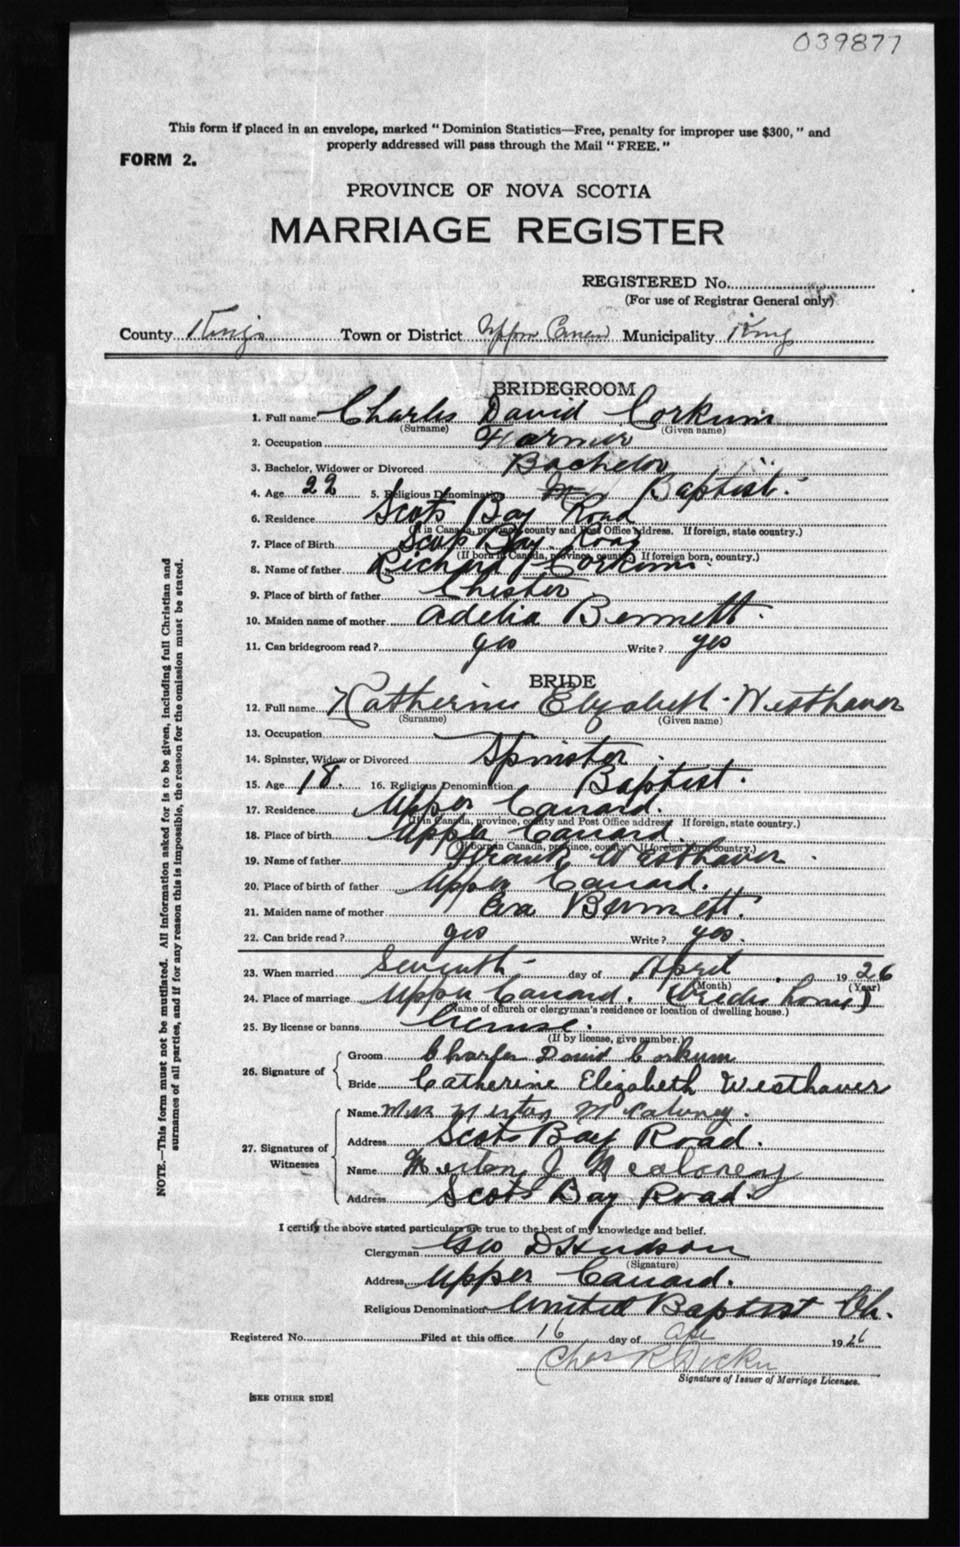 039877
This form if placed in an envelope, marked "Dominion Statistics—Free, penalty for improper use $300," and
properly addressed will pass through the Mail "FREE."
FORM 2.
PROVINCE OF NOVA SCOTIA
MARRIAGE REGISTER
REGISTERED No.
(For use of Registrar General only)
County Kings Town or District Upper Canard Municipality King
BRIDEGROOM
1. Full name Charles David Corkum
(Surname) (Given name)
2. Occupation Farmer
3. Bachelor, Widower or Divorced Bachelor
4. Age 22 5. Religious Denomination Baptist.
6. Residence Scots Bay Road
(If in Canada, province, county and Post Office address. If foreign, state country.)
7. Place of Birth Scots Bay Road
(If born in Canada, province, county. If foreign born, country.)
8. Name of father Richard Corkum.
9. Place of birth of father Chester
10. Maiden name of mother Adelia Bennett.
11. Can bridegroom read? yes Write? yes
BRIDE
12. Full name Katherine Elizabeth Westhaver
(Surname) (Given name)
13. Occupation
14. Spinster, Widow or Divorced Spinster.
15. Age 18. 16. Religious Denomination Baptist.
17. Residence Upper Canard.
(If in Canada, province, county and Post Office address If foreign, state country.)
18. Place of birth Upper Canard.
(If born in Canada, province, county. If foreign born, country.)
19. Name of father Frank Westhaver.
20. Place of birth of father Upper Canard.
21. Maiden name of mother Eva Bennett.
22. Can bride read? yes Write? yes.
23. When married Seventh day of April 1926
(Month) (Year)
24. Place of marriage Upper Canard. (Brides home)
(Name of church or clergyman's residence or location of dwelling house.)
25. By license or banns License.
(If by license, give number.)
26. Signature of
Groom Charles David Corkum
Bride Catherine Elizabeth Westhaver
27. Signatures of Witnesses
Name Mrs Merton McCaloney.
Address Scots Bay Road.
Name Merton J McCaloney
Address Scots Bay Road.
I certify the above stated particulars are true to the best of my knowledge and belief.
Clergyman Geo D Hudson
(Signature)
Address Upper Canard.
Religious Denomination United Baptist Ch.
Registered No. Filed at this office 16 day of Apr 1926
Chas R
Signature of Issuer of Marriage Licenses.
[SEE OTHER SIDE]
NOTE.—This form must not be mutilated. All information asked for is to be given, including full Christian and
surnames of all parties, and if for any reason this is impossible, the reason for the omission must be stated.